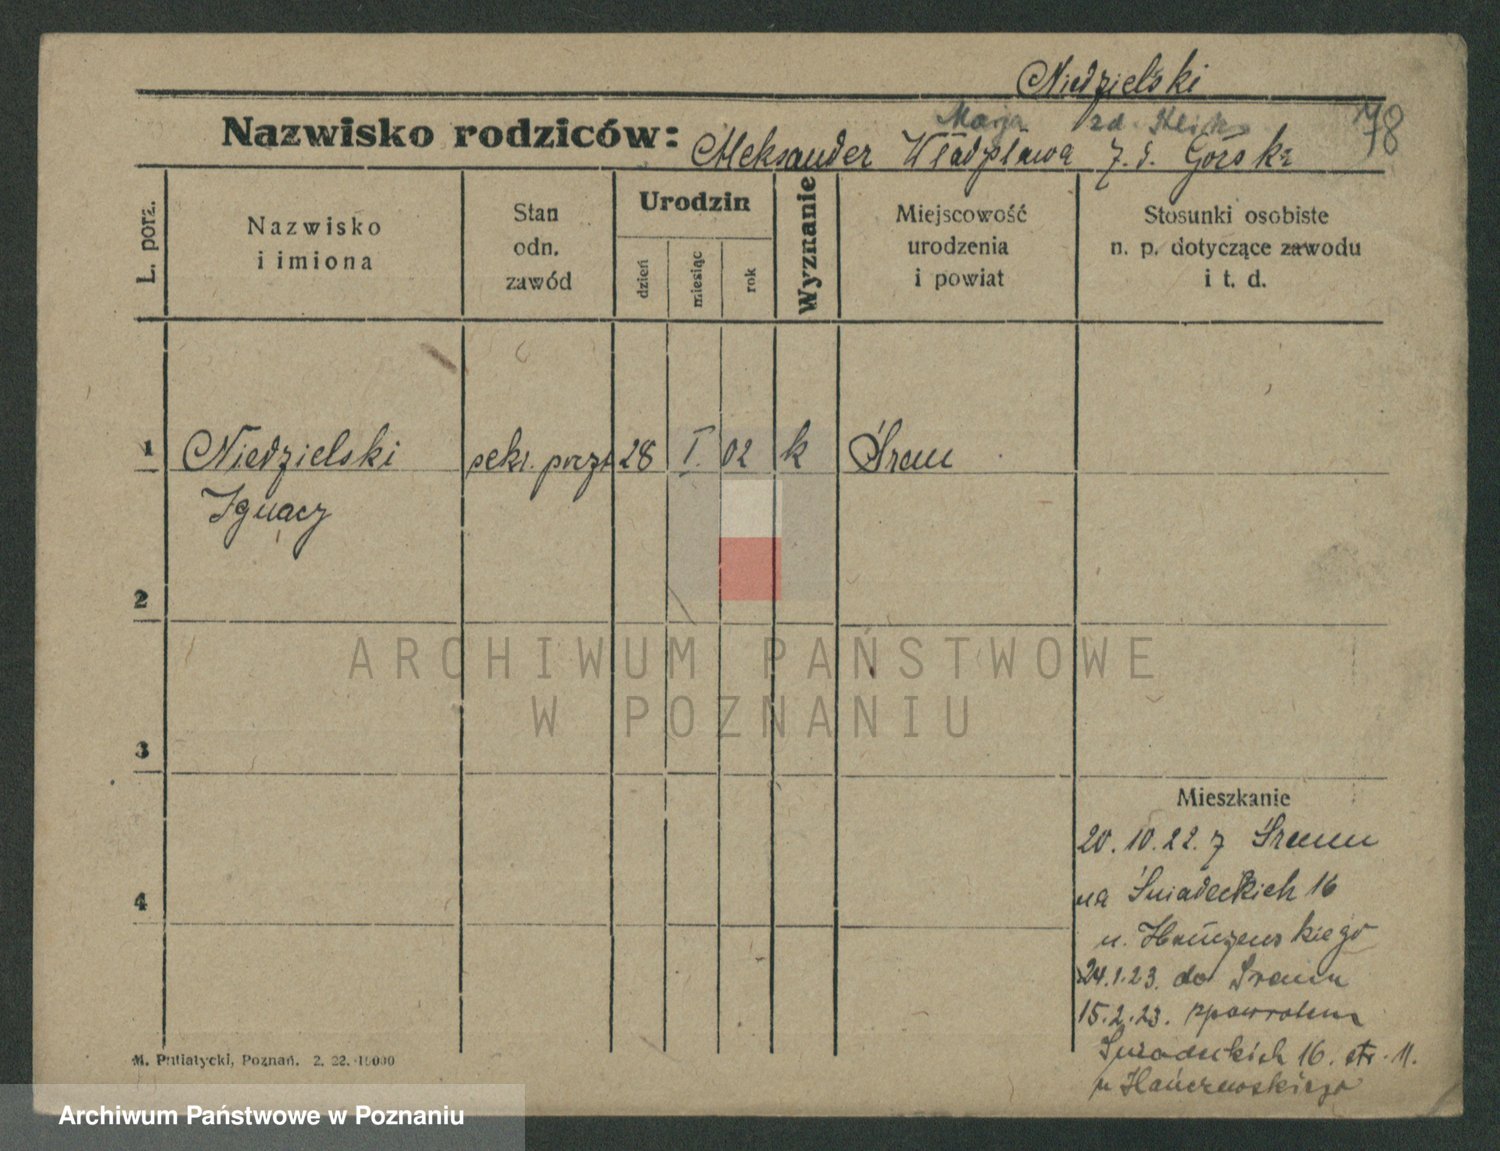 Niedzielski
Marja
78
Nazwisko rodziców: Aleksander Władysława z. d. Górska
L. porz.
Nazwisko
i imiona
Stan
odn.
zawód
Urodzin
dzień
miesiąc
rok
Wyznanie
Miejscowość
urodzenia
i powiat
Stosunki osobiste
n. p. dotyczące zawodu
i t. d.
1 Niedzielski sekr. poczt 28 I. 02 k Śrem
Ignacy
2
ARCHIWUM PAŃSTWOWE
W POZNANIU
3
Mieszkanie
20.10.22. z Śremu
na Śniadeckich 16
4
u. Hańczewskiego
24.1.23. do Śremu
15.2.23. zpowrotem
Śniadeckich 16. str. 11.
u Hańczewskiego
M. Putiatycki, Poznań. 2. 22. 15000
Archiwum Państwowe w Poznaniu